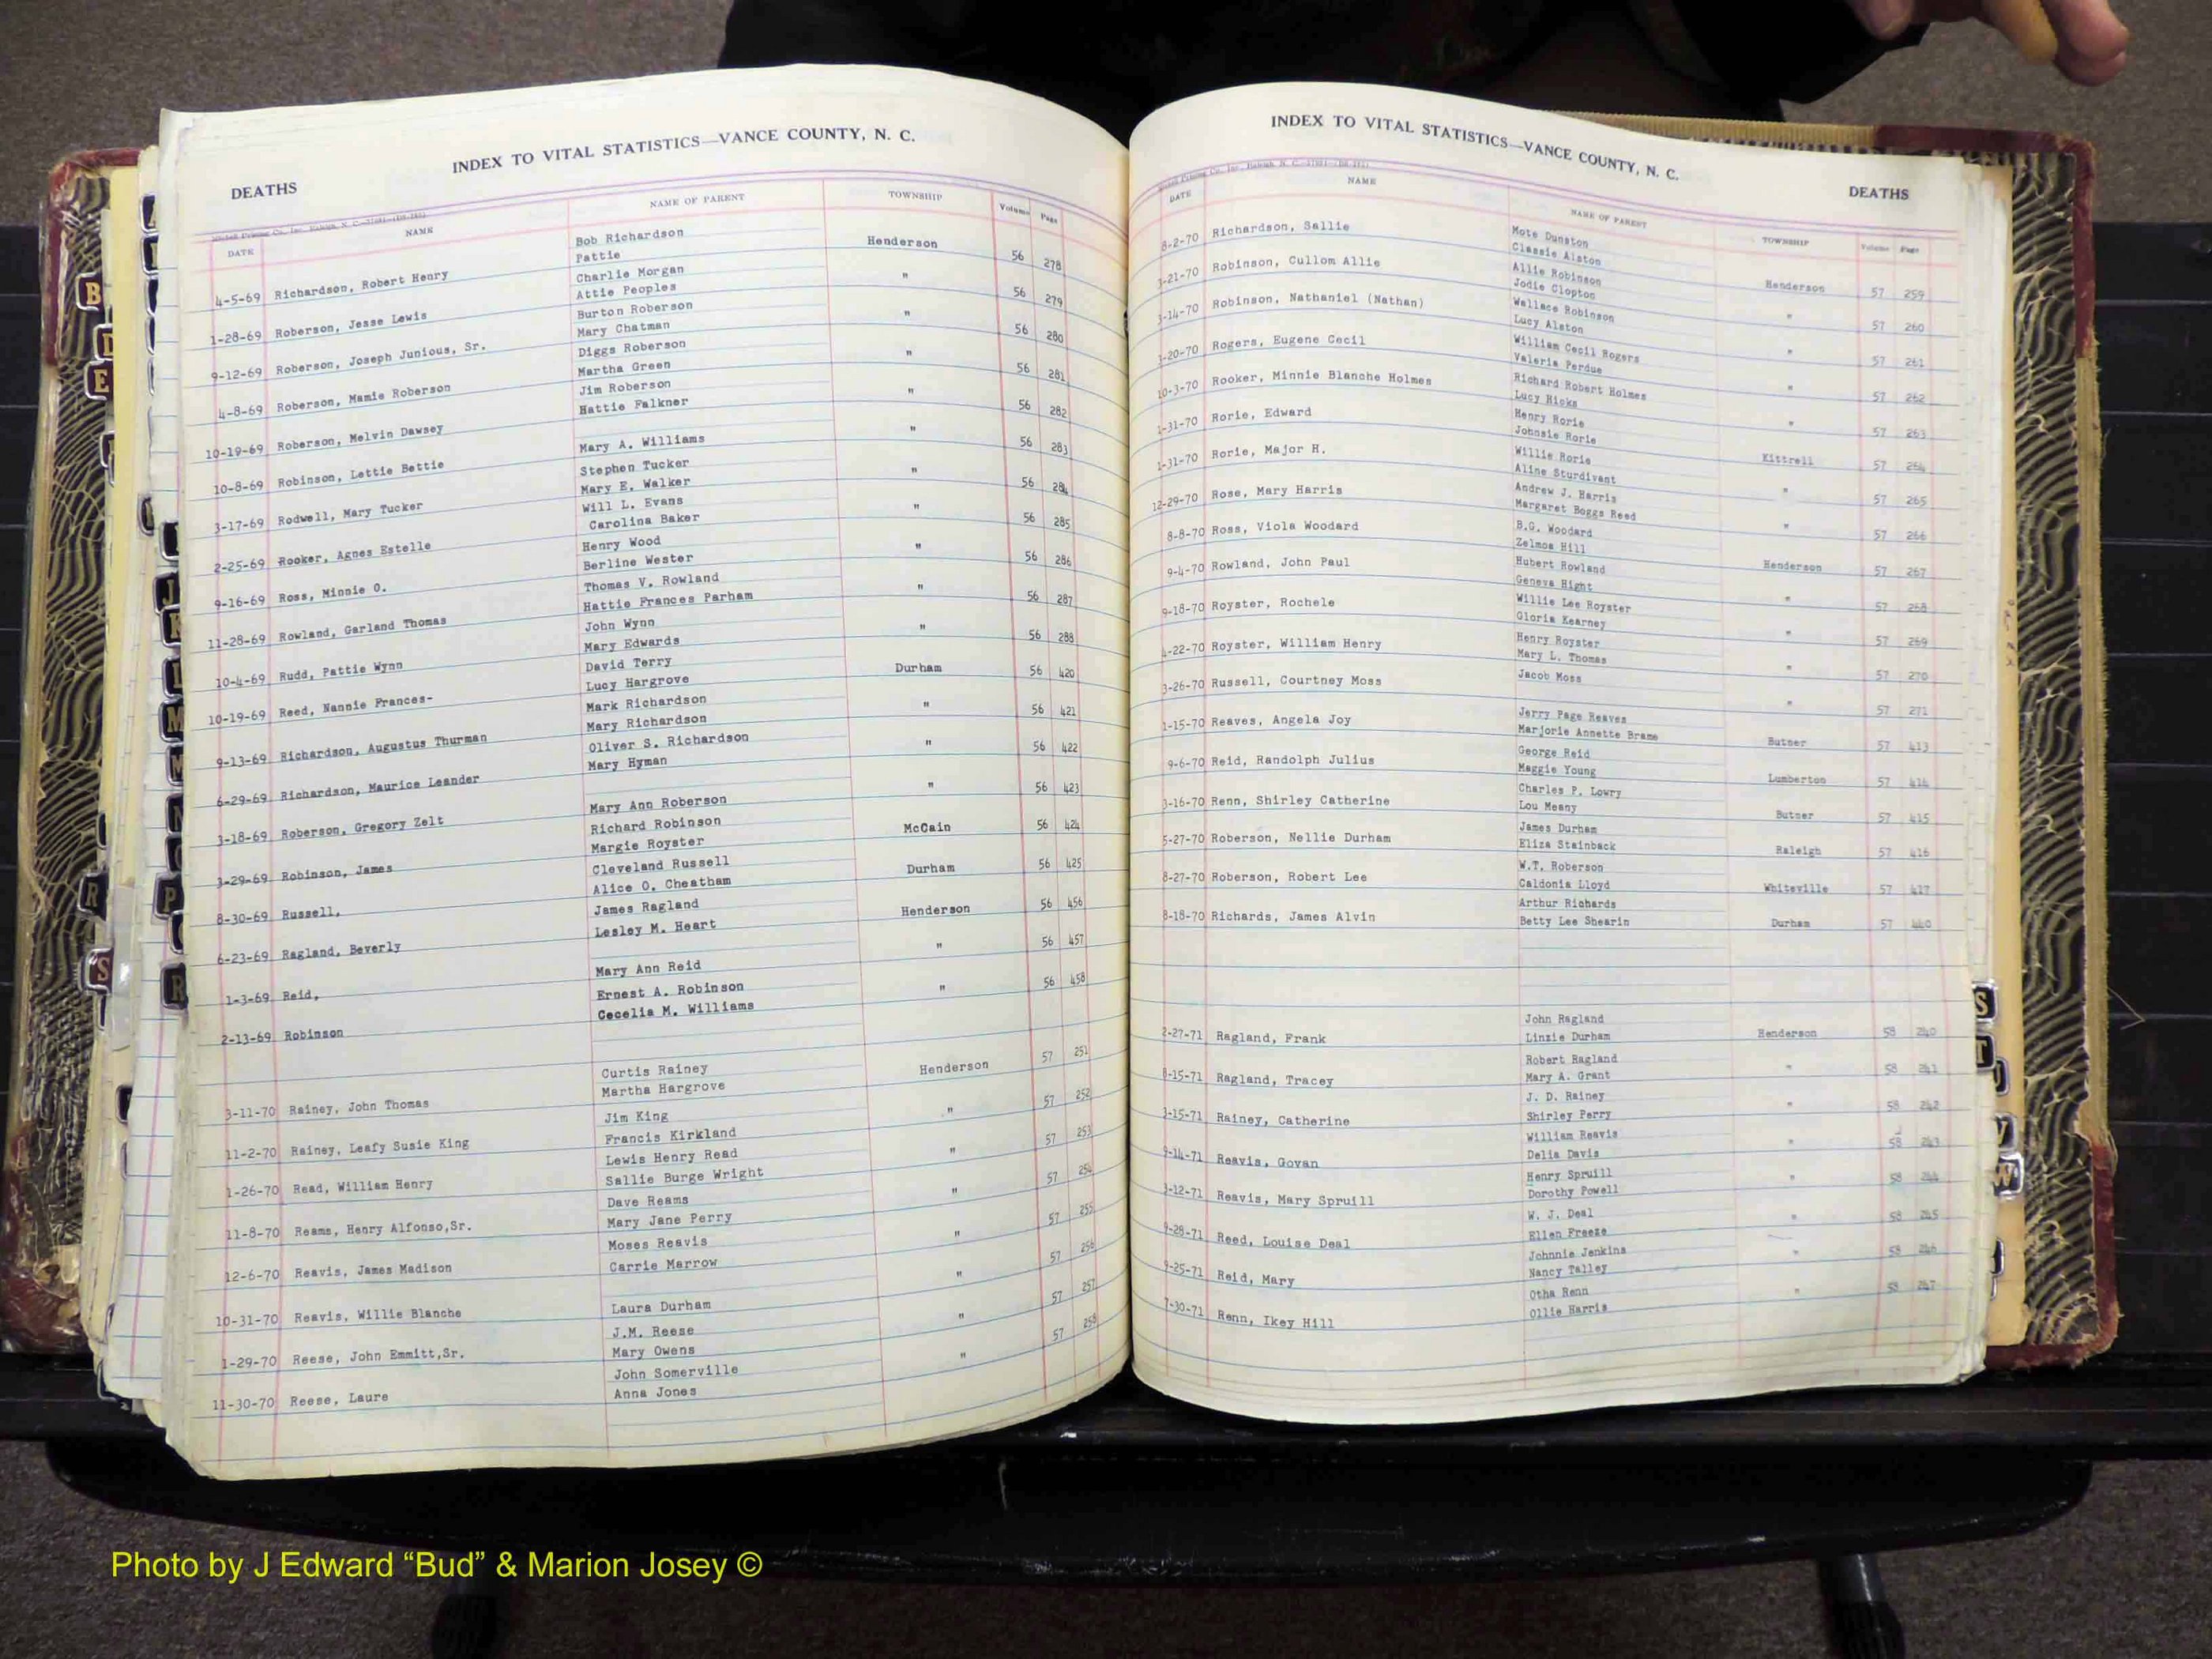 INDEX TO VITAL STATISTICS—VANCE COUNTY, N. C.
DEATHS
DATE NAME NAME OF PARENT TOWNSHIP Volume Page
4-5-69 Richardson, Robert Henry Bob Richardson Henderson 56 278
Pattie
1-28-69 Roberson, Jesse Lewis Charlie Morgan " 56 279
Attie Peoples
9-12-69 Roberson, Joseph Junious, Sr. Burton Roberson " 56 280
Mary Chatman
4-8-69 Roberson, Mamie Roberson Diggs Roberson " 56 281
Martha Green
10-19-69 Roberson, Melvin Dawsey Jim Roberson " 56 282
Hattie Falkner
10-8-69 Robinson, Lettie Bettie " 56 283
Mary A. Williams
3-17-69 Rodwell, Mary Tucker Stephen Tucker " 56 284
Mary E. Walker
2-25-69 Rooker, Agnes Estelle Will L. Evans " 56 285
Carolina Baker
9-16-69 Ross, Minnie O. Henry Wood " 56 286
Berline Wester
11-28-69 Rowland, Garland Thomas Thomas V. Rowland " 56 287
Hattie Frances Parham
10-4-69 Rudd, Pattie Wynn John Wynn " 56 288
Mary Edwards
10-19-69 Reed, Nannie Frances- David Terry Durham 56 420
Lucy Hargrove
9-13-69 Richardson, Augustus Thurman Mark Richardson " 56 421
Mary Richardson
6-29-69 Richardson, Maurice Leander Oliver S. Richardson " 56 422
Mary Hyman
3-18-69 Roberson, Gregory Zelt " 56 423
Mary Ann Roberson
3-29-69 Robinson, James Richard Robinson McCain 56 424
Margie Royster
8-30-69 Russell, Cleveland Russell Durham 56 425
Alice O. Cheatham
6-23-69 Ragland, Beverly James Ragland Henderson 56 456
Lesley M. Heart
1-3-69 Reid, " 56 457
Mary Ann Reid
2-13-69 Robinson Ernest A. Robinson " 56 458
Cecelia M. Williams
3-11-70 Rainey, John Thomas Curtis Rainey Henderson 57 251
Martha Hargrove
11-2-70 Rainey, Leafy Susie King Jim King " 57 252
Francis Kirkland
1-26-70 Read, William Henry Lewis Henry Read " 57 253
Sallie Burge Wright
11-8-70 Reams, Henry Alfonso,Sr. Dave Reams " 57 254
Mary Jane Perry
12-6-70 Reavis, James Madison Moses Reavis " 57 255
Carrie Marrow
10-31-70 Reavis, Willie Blanche " 57 256
Laura Durham
1-29-70 Reese, John Emmitt,Sr. J.M. Reese " 57 257
Mary Owens
11-30-70 Reese, Laure John Somerville " 57 258
Anna Jones
INDEX TO VITAL STATISTICS—VANCE COUNTY, N. C.
DEATHS
DATE NAME NAME OF PARENT TOWNSHIP Volume Page
8-2-70 Richardson, Sallie Mote Dunston Henderson 57 259
Classie Alston
1-21-70 Robinson, Cullom Allie Allie Robinson " 57 260
Jodie Clopton
3-14-70 Robinson, Nathaniel (Nathan) Wallace Robinson " 57 261
Lucy Alston
1-20-70 Rogers, Eugene Cecil William Cecil Rogers " 57 262
Valeria Perdue
10-3-70 Rooker, Minnie Blanche Holmes Richard Robert Holmes " 57 263
Lucy Hicks
1-31-70 Rorie, Edward Henry Rorie Kittrell 57 264
Johnsie Rorie
1-31-70 Rorie, Major H. Willie Rorie " 57 265
Aline Sturdivant
12-29-70 Rose, Mary Harris Andrew J. Harris " 57 266
Margaret Boggs Reed
8-8-70 Ross, Viola Woodard B.G. Woodard Henderson 57 267
Zelmoa Hill
9-4-70 Rowland, John Paul Hubert Rowland " 57 268
Geneva Hight
9-18-70 Royster, Rochele Willie Lee Royster " 57 269
Gloria Kearney
4-22-70 Royster, William Henry Henry Royster " 57 270
Mary L. Thomas
3-26-70 Russell, Courtney Moss Jacob Moss " 57 271
1-15-70 Reaves, Angela Joy Jerry Page Reaves Butner 57 413
Marjorie Annette Brame
9-6-70 Reid, Randolph Julius George Reid Lumberton 57 414
Maggie Young
3-16-70 Renn, Shirley Catherine Charles P. Lowry Butner 57 415
Lou Meany
5-27-70 Roberson, Nellie Durham James Durham Raleigh 57 416
Eliza Stainback
8-27-70 Roberson, Robert Lee W.T. Roberson Whiteville 57 417
Caldonia Lloyd
8-18-70 Richards, James Alvin Arthur Richards Durham 57 440
Betty Lee Shearin
2-27-71 Ragland, Frank John Ragland Henderson 58 240
Linzie Durham
8-15-71 Ragland, Tracey Robert Ragland " 58 241
Mary A. Grant
3-15-71 Rainey, Catherine J. D. Rainey " 58 242
Shirley Perry
9-14-71 Reavis, Govan William Reavis " 58 243
Delia Davis
3-12-71 Reavis, Mary Spruill Henry Spruill " 58 244
Dorothy Powell
9-28-71 Reed, Louise Deal W. J. Deal " 58 245
Ellen Freeze
9-25-71 Reid, Mary Johnnie Jenkins " 58 246
Nancy Talley
7-30-71 Renn, Ikey Hill Otha Renn " 58 247
Ollie Harris
B
D
E
J
K
L
M
M
N
P
R
S
R
S
T
W
Photo by J Edward “Bud” & Marion Josey ©